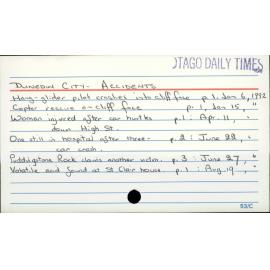 OTAGO DAILY TIMES
DUNEDIN CITY - ACCIDENTS
Hang-glider pilot crashes into cliff face p.1, Jan 6, 1992
Copter rescue on cliff face p.1, Jan 15, "
Woman injured after car hurtles p.1: Apr. 11, "
down High St.
One still in hospital after three- p.2: June 22, "
car crash.
Puddingstone Rock claims another victim. p.3: June 27, "
Volatile find found at St Clair house. p.1: Aug. 19, "
53/C